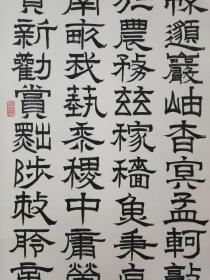 綿邈巖岫杳冥孟軻敦
於農務茲稼穡魚秉直
南畝我藝黍稷中庸勞
貢新勸賞黜陟敕聆音